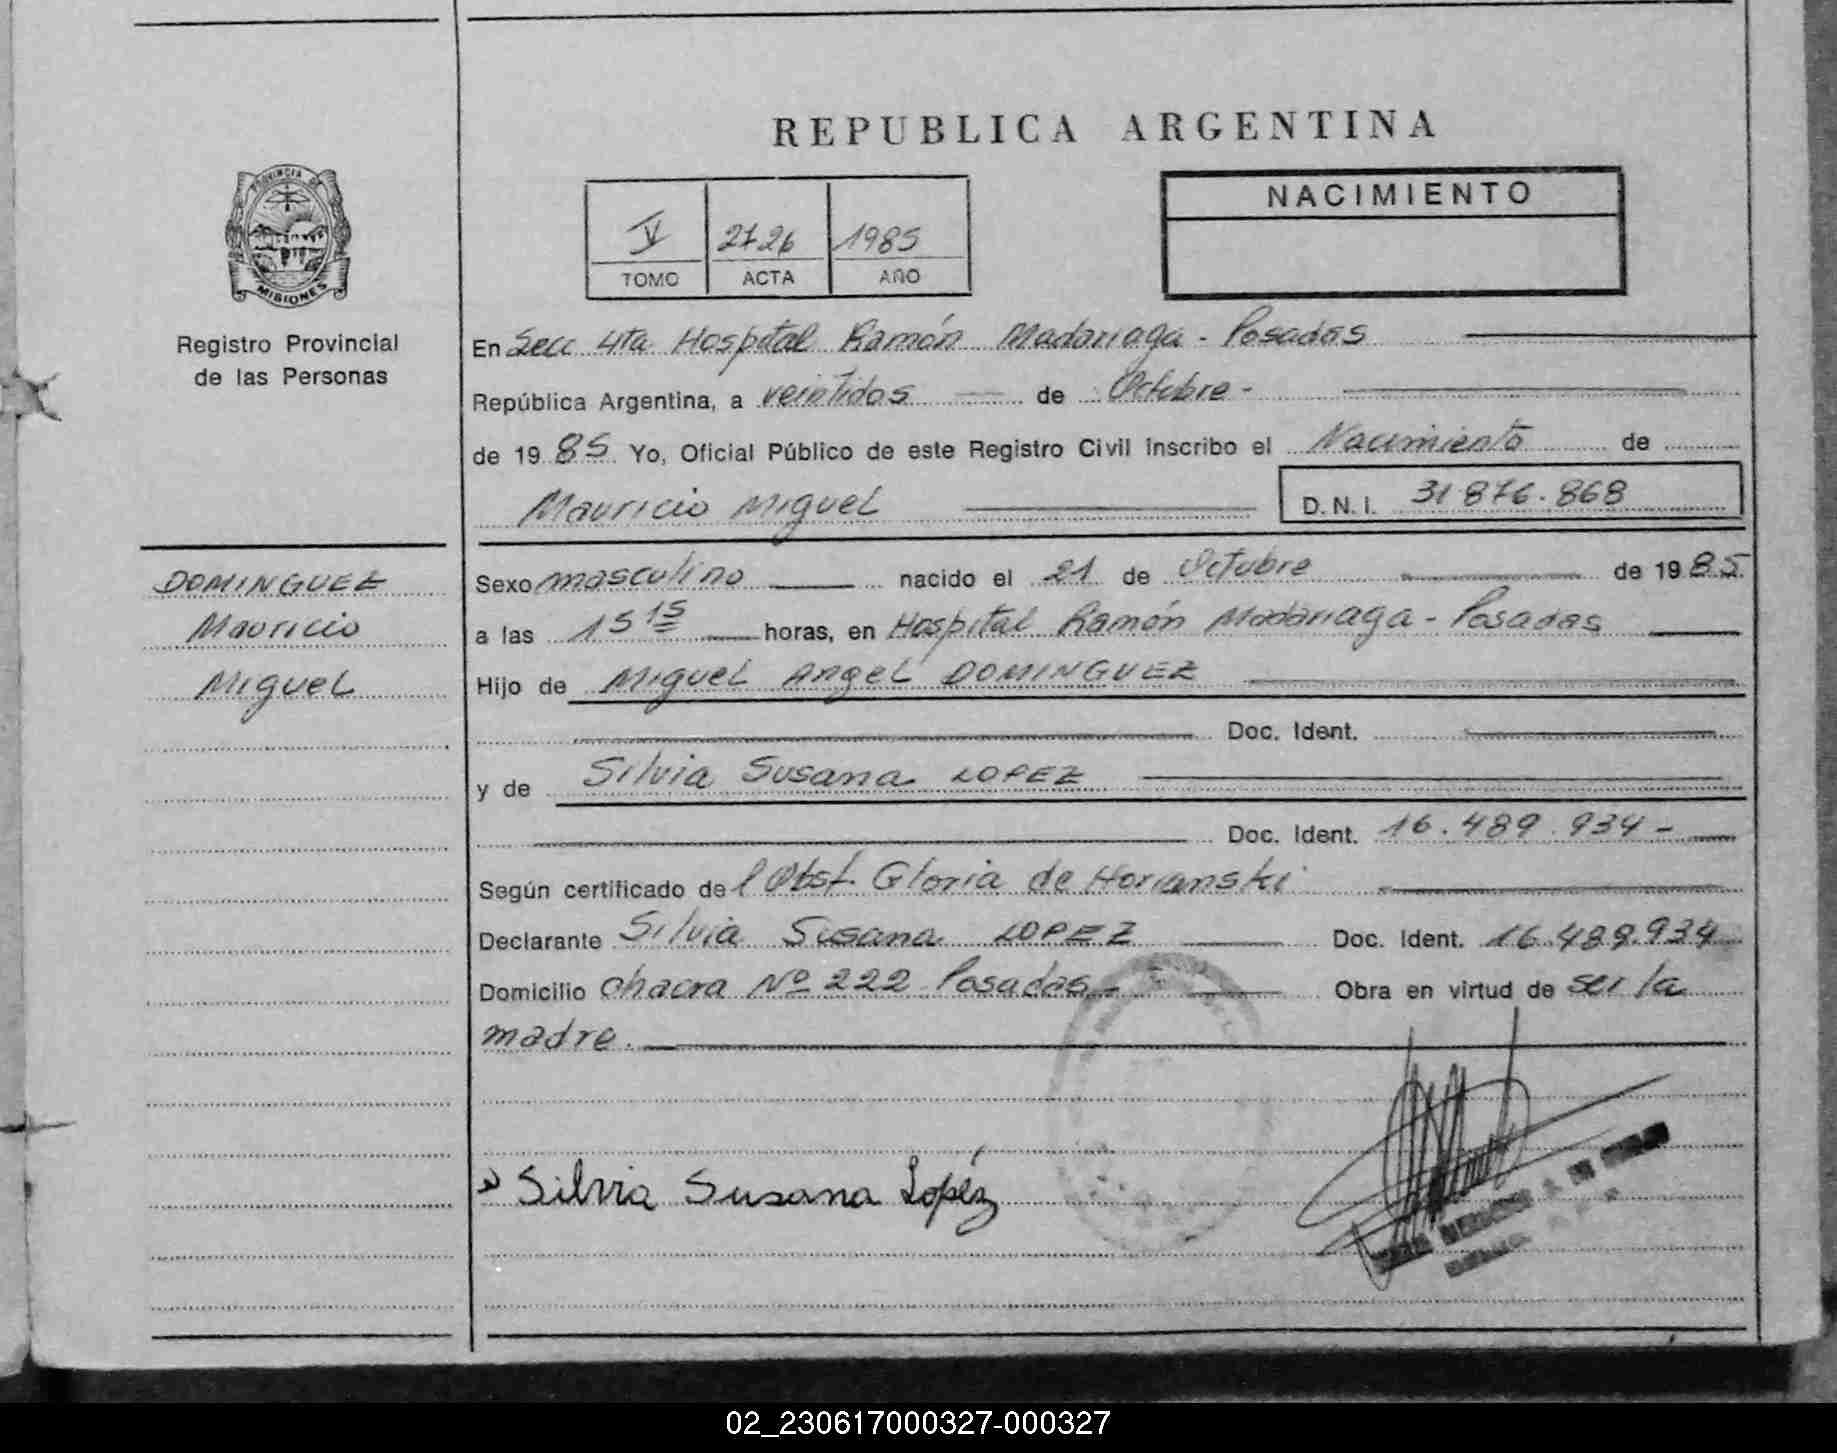 REPUBLICA ARGENTINA
PROVINCIA DE
MISIONES
Registro Provincial
de las Personas
V 2126 1985
TOMO ACTA AÑO
NACIMIENTO
En Secc 4ta Hospital Ramón Madariaga - Posadas
República Argentina, a veintidos de Octubre -
de 1985 Yo, Oficial Público de este Registro Civil inscribo el Nacimiento de
Mauricio Miguel D.N.I. 31.876.868
DOMINGUEZ
Mauricio
Miguel
Sexo masculino nacido el 21 de Octubre de 1985.
a las 15 15 horas, en Hospital Ramón Madariaga - Posadas
Hijo de Miguel Angel DOMINGUEZ
Doc. Ident.
y de Silvia Susana LOPEZ
Doc. Ident. 16.489.934 -
Según certificado de l Obst. Gloria de Horianski
Declarante Silvia Susana LOPEZ Doc. Ident. 16.489.934
Domicilio chacra Nº 222 Posadas - Obra en virtud de ser la
madre.
Silvia Susana Lopéz
02_230617000327-000327